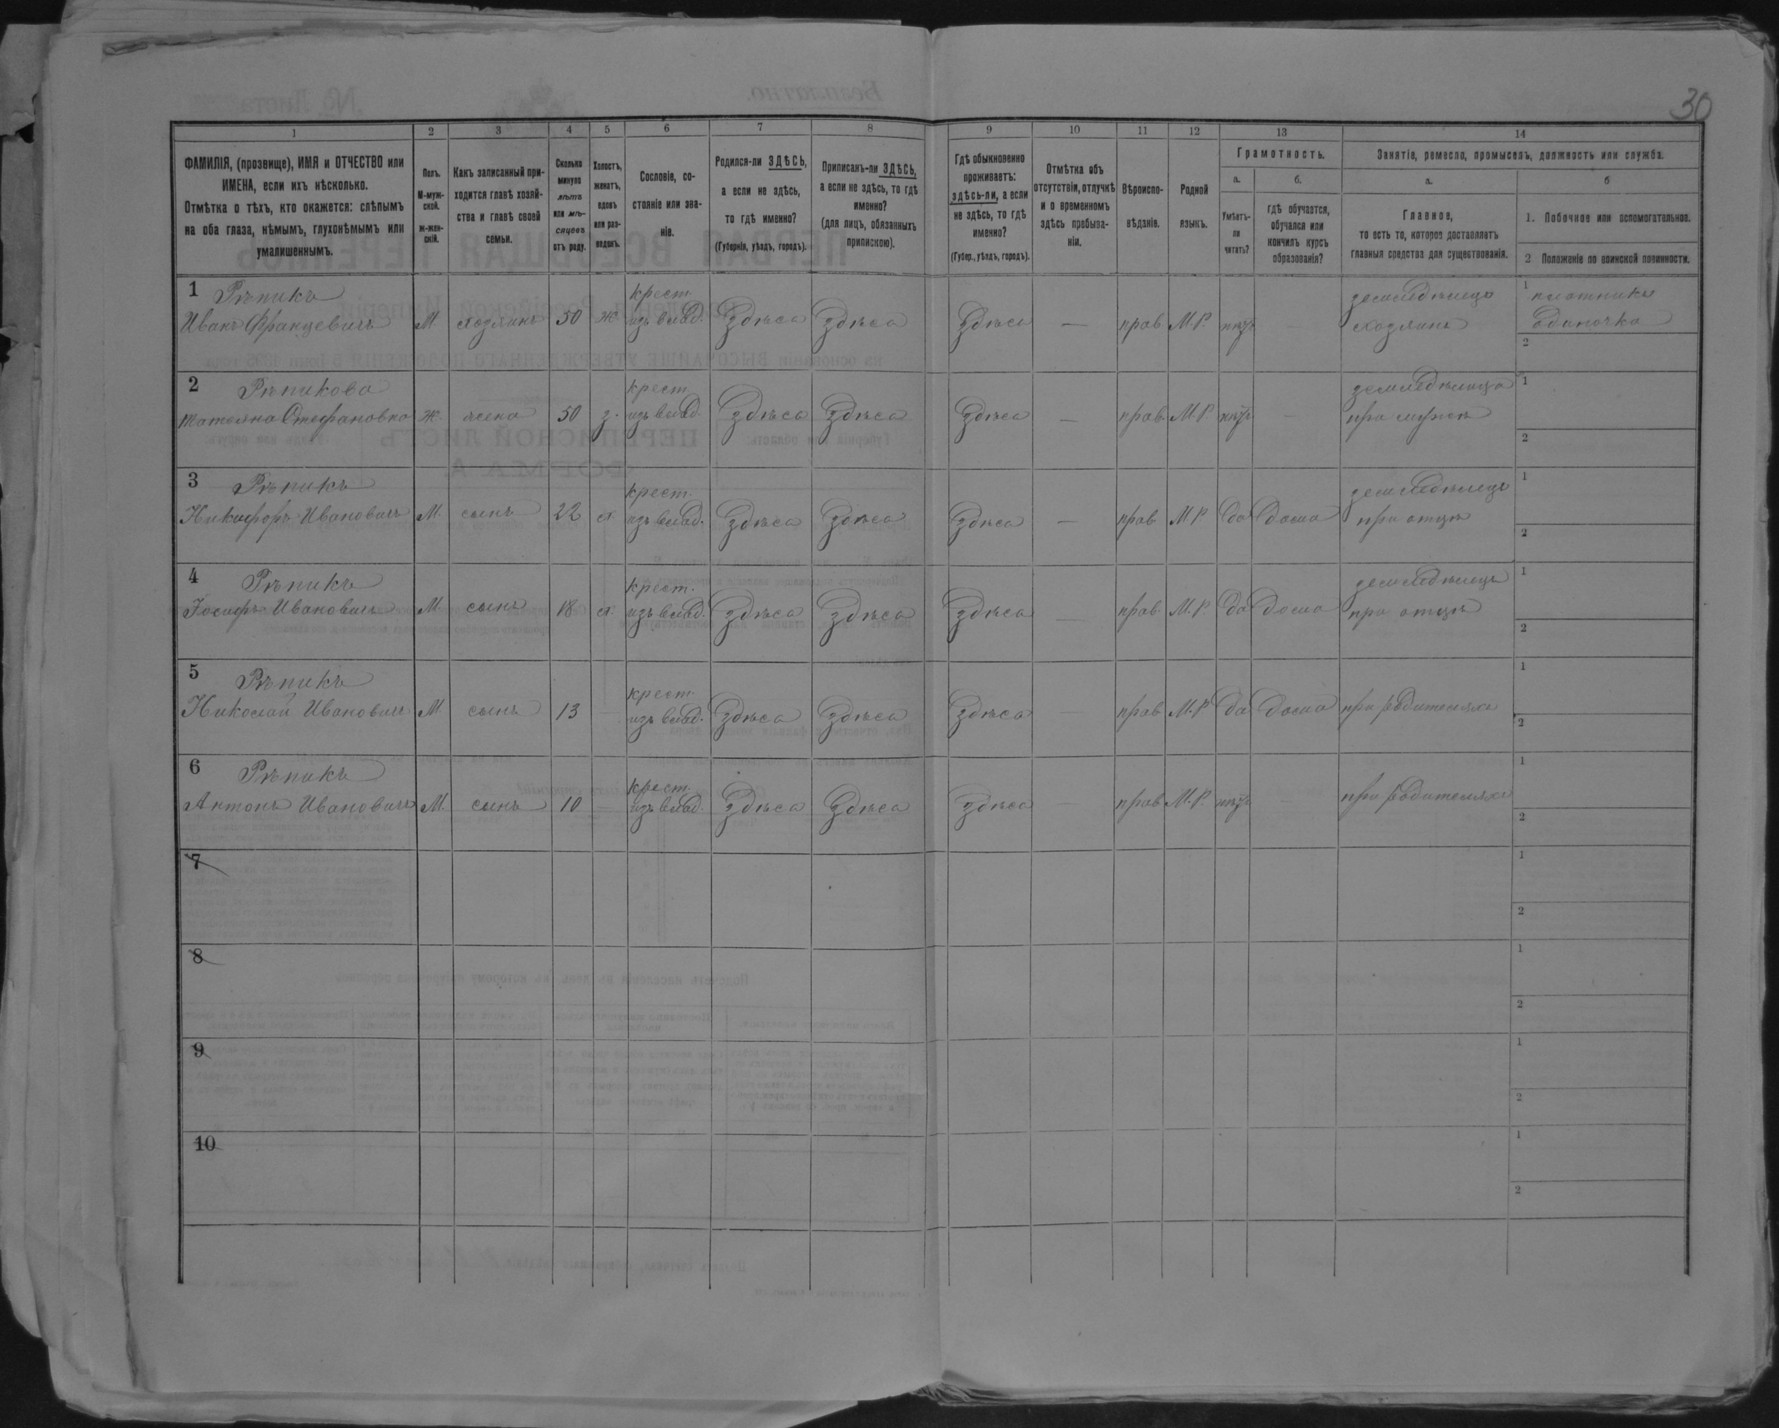 30
1 2 3 4 5 6 7 8 9 10 11 12 13 14
ФАМИЛІЯ, (прозвище), ИМЯ и ОТЧЕСТВО или
ИМЕНА, если ихъ нѣсколько.
Отмѣтка о тѣхъ, кто окажется: слѣпымъ
на оба глаза, нѣмымъ, глухонѣмымъ или
умалишеннымъ.
Полъ.
М-муж-
ской.
ж-жен-
скій.
Какъ записанный при-
ходится главѣ хозяй-
ства и главѣ своей
семьи.
Сколько
минуло
лѣтъ
или мѣ-
сяцевъ
отъ роду.
Холостъ,
женатъ,
вдовъ
или раз-
веденъ.
Сословіе, со-
стояніе или зва-
ніе.
Родился-ли ЗДѢСЬ,
а если не здѣсь,
то гдѣ именно?
(Губернія, уѣздъ, городъ).
Приписанъ-ли ЗДѢСЬ,
а если не здѣсь, то гдѣ
именно?
(для лицъ, обязанныхъ
припискою).
Гдѣ обыкновенно
проживаетъ:
здѣсь-ли, а если
не здѣсь, то гдѣ
именно?
(Губер., уѣздъ, городъ).
Отмѣтка объ
отсутствіи, отлучкѣ
и о временномъ
здѣсь пребыва-
ніи.
Вѣроиспо-
вѣданіе.
Родной
языкъ.
Грамотность.
а.
Умѣетъ-
ли
читать?
б.
гдѣ обучается,
обучался или
кончилъ курсъ
образованія?
Занятіе, ремесло, промыселъ, должность или служба.
а.
Главное,
то есть то, которое доставляетъ
главныя средства для существованія.
б
1. Побочное или вспомогательное.
2 Положеніе по воинской повинности.
1 Рѣпикъ крест. земледѣлецъ 1 плотникъ
Иванъ Францевичъ М хозяинъ 50 ж. изъ влад. здѣсь здѣсь здѣсь — прав. М.Р. — хозяинъ одиночка
2
2 Рѣпикова крест. земледѣлица 1
Татьяна Стефановна ж. жена 50 з. изъ влад. здѣсь здѣсь здѣсь — прав. М.Р. — при мужѣ
2
3 Рѣпикъ крест. земледѣлецъ 1
Никифоръ Ивановичъ М. сынъ 22 изъ влад. здѣсь здѣсь здѣсь — прав. М.Р. да дома при отцѣ
2
4 Рѣпикъ крест. земледѣлецъ 1
Іосифъ Ивановичъ М. сынъ 18 изъ влад. здѣсь здѣсь здѣсь — прав. М.Р. да дома при отцѣ
2
5 Рѣпикъ крест. 1
Николай Ивановичъ М сынъ 13 — изъ влад. здѣсь здѣсь здѣсь — прав. М.Р. да дома при родителяхъ
2
6 Рѣпикъ крест. 1
Антонъ Ивановичъ М. сынъ 10 — изъ влад. здѣсь здѣсь здѣсь прав. М.Р. — при родителяхъ
2
7 1
2
8 1
2
9 1
2
10 1
2